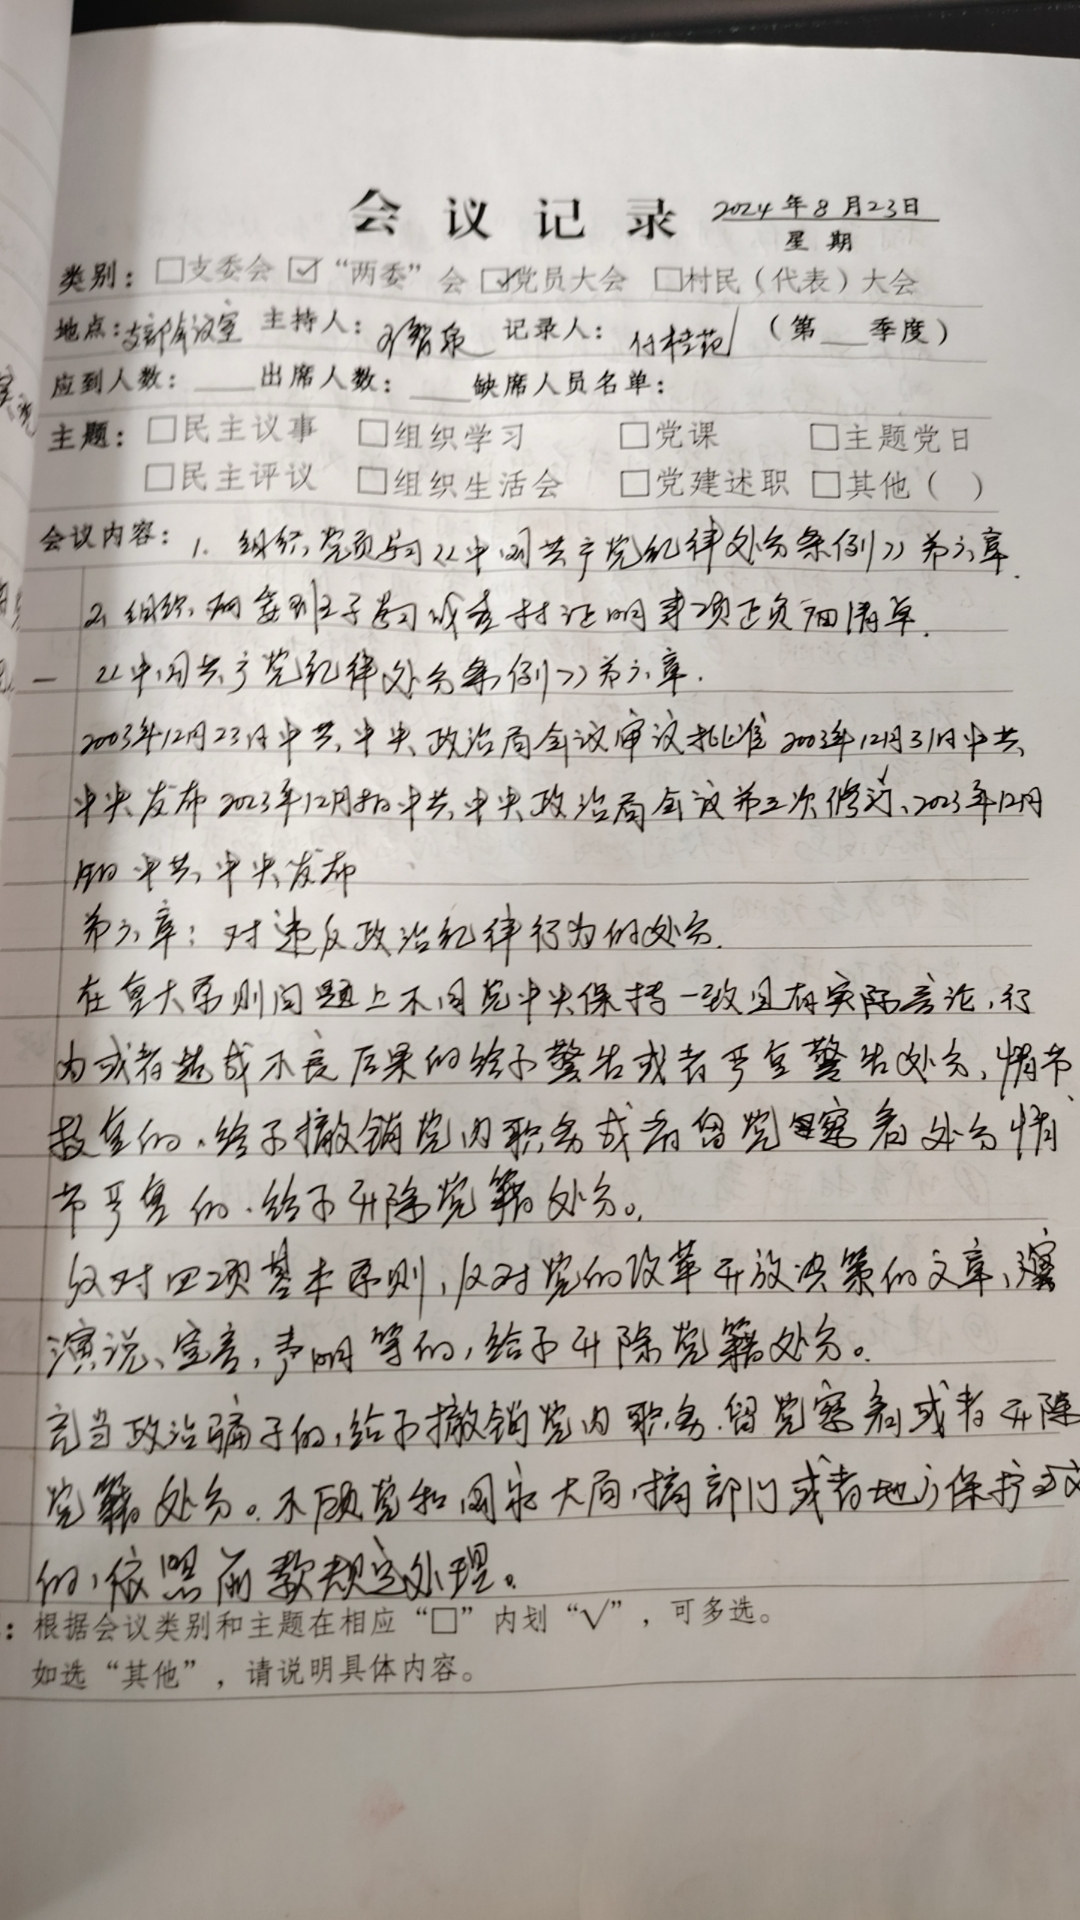 会议记录 2024年8月23日
星期
类别：□支委会 ☑“两委”会 ☑党员大会 □村民（代表）大会
地点：支部会议室 主持人： 记录人：付桂苑 （第 季度）
应到人数： 出席人数： 缺席人员名单：
主题：□民主议事 □组织学习 □党课 □主题党日
□民主评议 □组织生活会 □党建述职 □其他（ ）
会议内容：1. 组织党员学习《中国共产党纪律处分条例》第六章.
2. 组织两委班子学习 村证明事项正负面清单.
一 《中国共产党纪律处分条例》第六章.
2003年12月23日中共中央政治局会议审议批准 2003年12月31日中共
中央发布 2023年12月8日中共中央政治局会议第三次修订、2023年12月
中共中央发布
第六章：对违反政治纪律行为的处分.
在重大原则问题上不同党中央保持一致且有实际言论，行
为或者造成不良后果的给予警告或者严重警告处分，情节
较重的，给予撤销党内职务或者留党察看处分情
节严重的，给予开除党籍处分。
反对四项基本原则，反对党的改革开放决策的文章、
演说、宣言，声明等的，给予开除党籍处分。
充当政治骗子的，给予撤销党内职务、留党察看或者开除
党籍处分。不顾党和国家大局，搞部门或者地方保护主义
的，依照前款规定处理。
：根据会议类别和主题在相应“□”内划“√”，可多选。
如选“其他”，请说明具体内容。